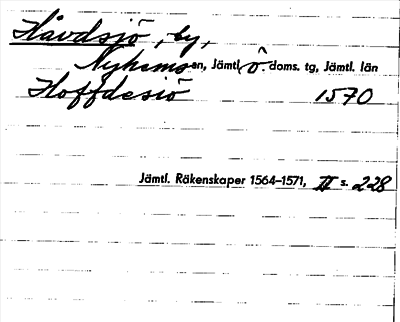 Håvdsjö, by,
Nyhems en, Jämtl. Ö. doms. tg, Jämtl. län
Hoffdesiö 1570
Jämtl. Räkenskaper 1564–1571, II s. 228